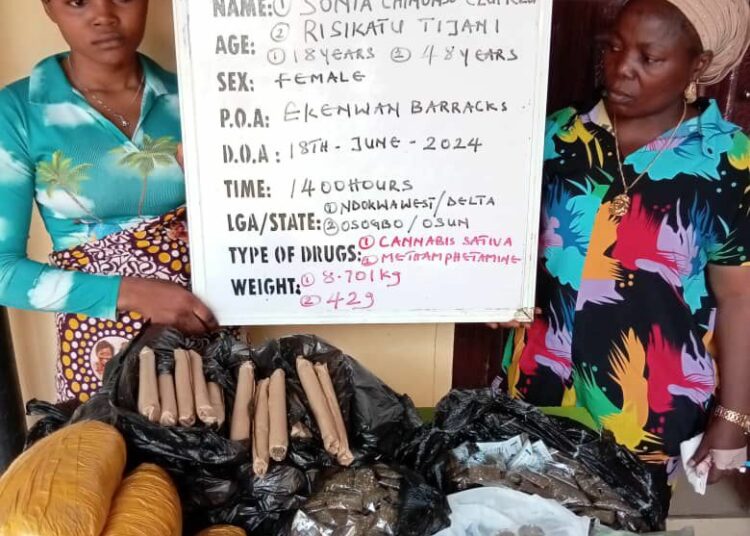 NAME: ① SONIA CHIMONSO
② RISIKATU TIJANI
AGE: ① 18 YEARS ② 48 YEARS
SEX: FEMALE
P.O.A: EKENWAN BARRACKS
D.O.A: 18TH - JUNE - 2024
TIME: 1400HOURS
LGA/STATE: ① NDOKWA WEST/DELTA
② OSOGBO/OSUN
TYPE OF DRUGS: ① CANNABIS SATIVA
② METHAMPHETAMINE
WEIGHT: ① 8.701Kg
② 42g